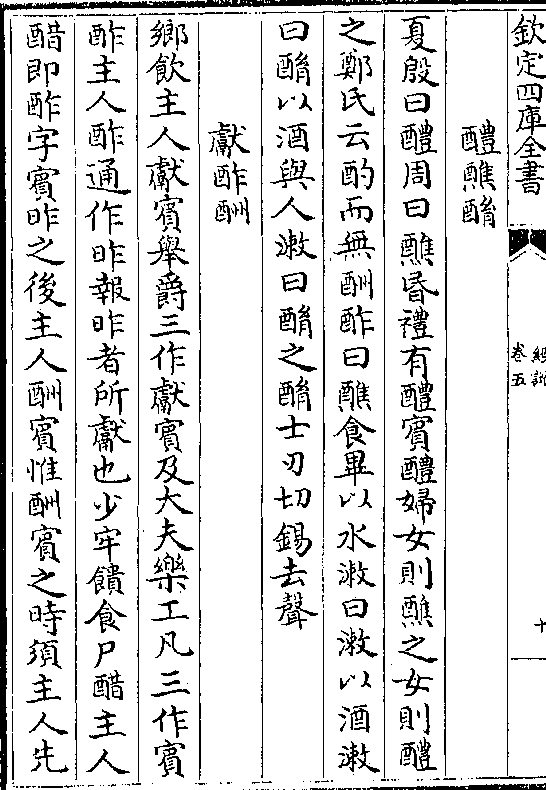 欽定四庫全書
經說
卷五
十
醴醮酳
夏殷曰醴周曰醮昏禮有醴賓醴婦女則醮之女則醴
之鄭氏云酌而無酬酢曰醮食畢以水漱曰漱以酒漱
曰酳以酒與人漱曰酳之酳士刃切錫去聲
獻酢酬
鄉飲主人獻賓舉爵三作獻賓及大夫樂工凡三作賓
酢主人酢通作昨報昨者所獻也少牢饋食尸醋主人
醋即酢字賓昨之後主人酬賓惟酬賓之時須主人先